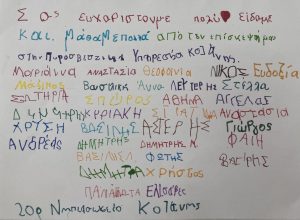 Σας ευχαριστουμε πολύ Είδαμε
Και Μάθαμε Πολλά από την επίσκεψή μας
στην Πυροσβεστική Υπηρεσία Κοζάνης.
Μαριάννα ΑΝΑΣΤΑΣΙΑ Θεοφανία ΝΙΚΟΣ Ευδοξία
Μάξιμος Βασιλική Άννα ΛΕΥΤΕΡΗΣ Στέλλα
ΣΩΤΗΡΙΑ ΣΠΥΡΟΣ ΑΘΗΝΑ ΑΓΓΕΛΟΣ
ΔΗΜΗΤΡΗΣ ΚΥΡΙΑΚΗ Αναστασία
ΧΡΥΣΗ ΒΑΣΙΛΗΣ ΑΣΤΕΡΗΣ Γιώργος
Ανδρέας ΔΗΜΗΤΡΗΣ ΔΗΜΗΤΡΗΣ Ν. ΦΑΙΗ
ΒΑΣΙΛΙΚΗ ΦΩΤΗΣ
ΔΗΜΗΤΡΑ Χρήστος
ΠΑΝΑΓΙΩΤΑ ΕΛΙΣΣΑΒΕΤ
20ο Νηπιαγωγείο Κοζάνης